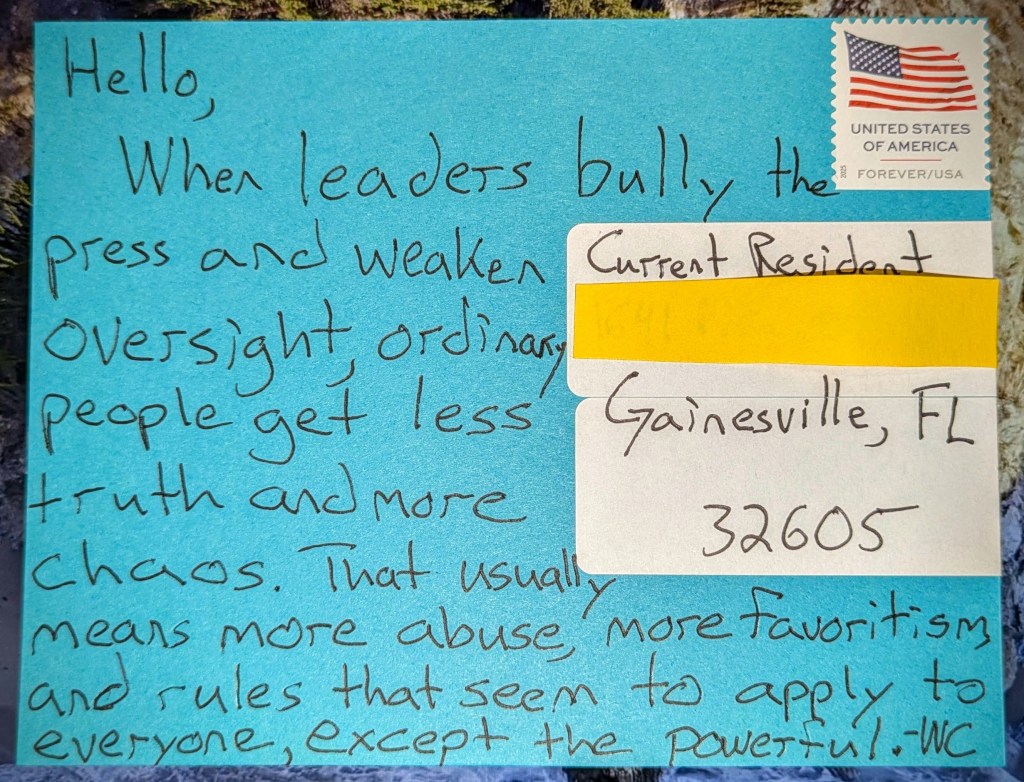 Hello,
When leaders bully the
press and weaken
oversight, ordinary
people get less
truth and more
chaos. That usually
means more abuse, more favoritism,
and rules that seem to apply to
everyone, except the powerful. -WC
UNITED STATES
OF AMERICA
2025
FOREVER/USA
Current Resident
Gainesville, FL
32605